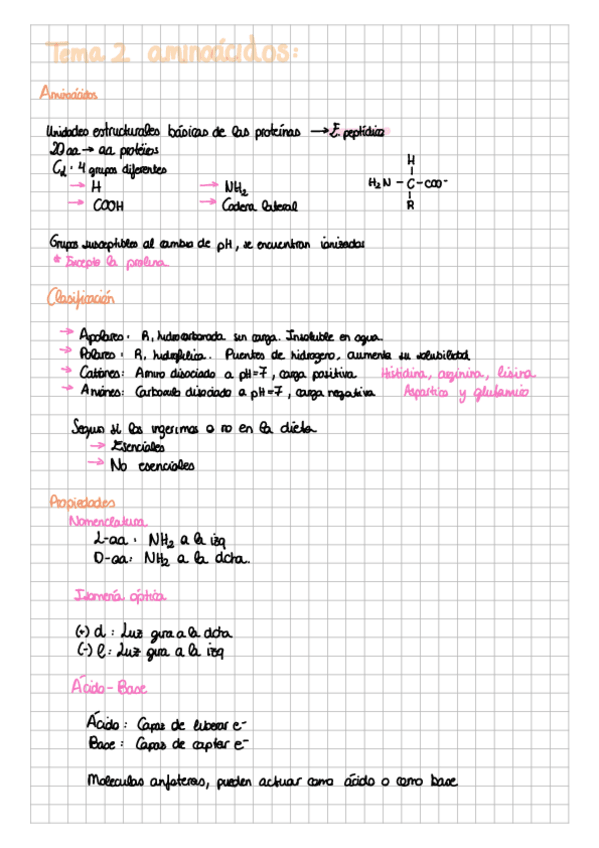 Tema 2 aminoácidos:
Aminoácidos
Unidades estructurales básicas de las proteínas → E. peptídico
20 aa → aa protéicos
Cα: 4 grupos diferentes
→ H → NH₂
→ COOH → Cadena lateral
H
H₂N – C – COO⁻
R
Grupos susceptibles al cambio de pH, se encuentran ionizados
* Excepto la prolina
Clasificación
→ Apolares: R, hidrocarbonada sin carga. Insoluble en agua.
→ Polares: R, hidrofílica. Puentes de hidrogeno, aumenta su solubilidad
→ Catiónes: Amino disociado a pH=7, carga positiva Histidina, arginina, lisina
→ Aniónes: Carboxilo disociado a pH=7, carga negativa Aspártico y glutamico
Segun si los ingerimos o no en la dieta
→ Esenciales
→ No esenciales
Propiedades
Nomenclatura
L-aa: NH₂ a la izq
D-aa: NH₂ a la dcta.
Isomería óptica
(+) d: Luz gira a la dcta
(-) l: Luz gira a la izq
Ácido-Base
Ácido: Capaz de liberar e⁻
Base: Capaz de captar e⁻
Moleculas anfoteras, pueden actuar como ácido o como base